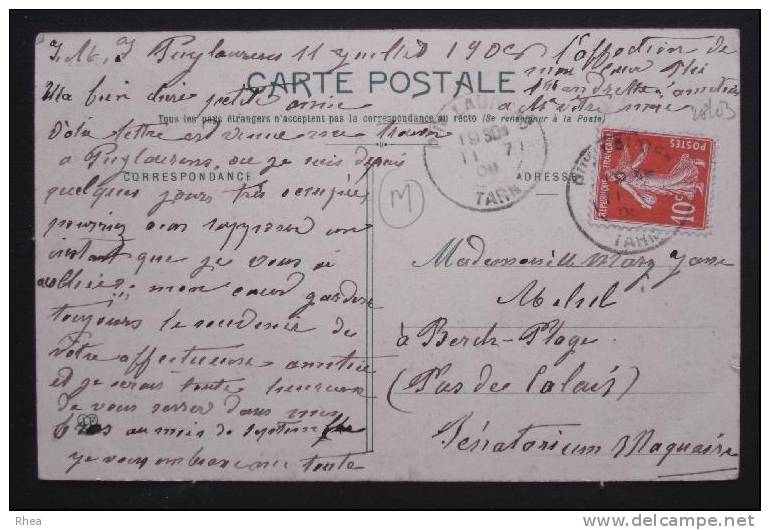 J. M. J. Puylaurens 11 juillet 190
l'affection de
mon cœur
à Me votre mère
20103
CARTE POSTALE
Ma bien chère petite amie
Tous les pays étrangers n'acceptent pas la correspondance au recto (Se renseigner à la Poste)
Votre lettre est venue me trouver
à Puylaurens, où je suis depuis
CORRESPONDANCE
ADRESSE
quelques jours très occupée
pourriez vous supposer un
instant que je vous ai
oubliée!! mon cœur gardera
toujours le souvenir de
votre affectueuse amitié
et je serais toute heureuse
de vous serrer dans mes
bras au mois de septembre
je vous embrasse avec toute
M
TARN
POSTES
REPUBLIQUE FRANÇAISE
10c
TARN
Mademoiselle Mary Jane
à Berck-Plage
(Pas de Calais)
Sénatorium Maquaire
Rhea
http://www.delcampe.net